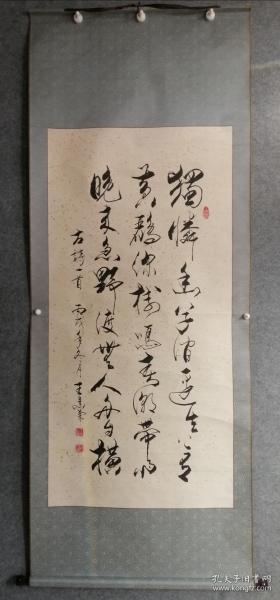 獨憐幽草澗邊生上有
黃鸝深樹鳴春潮帶雨
晚來急野渡無人舟自橫
古詩一首 丙戌年冬月 王
孔夫子旧书网
kongfz.com